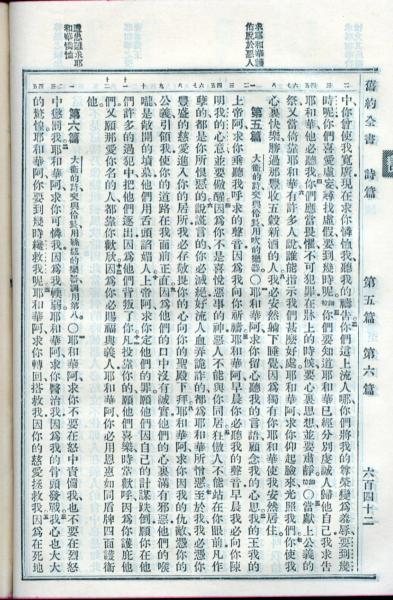 舊約全書 詩篇 第五篇 第六篇 六百四十二
中你曾使我寬所現在求你憐恤我聽我的禱告你們這上流人哪你們將我的尊榮變爲羞辱要到幾
時呢你們喜愛虛妄尋找虛假要到幾時呢細拉你們要知道耶和華已經分別虔誠人歸他自己我求告
耶和華他必聽我你們應當畏懼不可犯罪在牀上的時候要心裏思想並要肅靜細拉〇當獻上公義的
祭又當倚靠耶和華有許多人說誰能指示我們甚麼好處耶和華求你仰起臉來光照我們你使我
心裏快樂勝過那豐收五穀新酒的人我必安然躺下睡覺因爲獨有你耶和華使我安然居住
第五篇 大衛的詩交與伶長用吹的樂器〇耶和華求你留心聽我的言語顧念我的心思我的王我的
上帝阿求你垂聽我呼求的聲音因爲我向你祈禱耶和華早晨你必聽我的聲音早晨我必向你陳
明我的心意並要儆醒因爲你不是喜悅惡事的神惡人不能與你同居狂傲人不能站在你眼前凡作
孽的都是你所恨惡的說謊言的你必滅絕好流人血弄詭詐的都爲耶和華所憎惡至於我我必憑你
豐盛的慈愛進入你的居所我必存敬畏你的心向你的聖殿下拜耶和華求你因我的仇敵憑你的
公義引領我使你的道路在我面前正直因爲他們的口中沒有誠實他們的心裏滿有邪惡他們的喉
嚨是敞開的墳墓他們用舌頭諂媚人上帝阿求你定他們的罪願他們因自己的計謀跌倒願你在他
們許多的過犯中把他們逐出因爲他們背叛了你凡投靠你的願他們喜樂時常歡呼因爲你護庇他
們又願那愛你名的人都靠你歡欣因爲你必賜福與義人耶和華阿你必用恩惠如同盾牌四面護衛
他
第六篇 大衛的詩交與伶長用絲絃的樂器調用第八〇耶和華阿求你不要在怒中責備我也不要在烈怒
中懲罰我耶和華阿求你可憐我因爲我軟弱耶和華阿求你醫治我因爲我的骨頭發戰我心也大大
的驚惶耶和華阿你要到幾時纔救我呢耶和華阿求你轉回搭救我因你的慈愛拯救我因爲在死地
求耶和華護
佑脫於惡人
遭患難求耶
和華憐恤